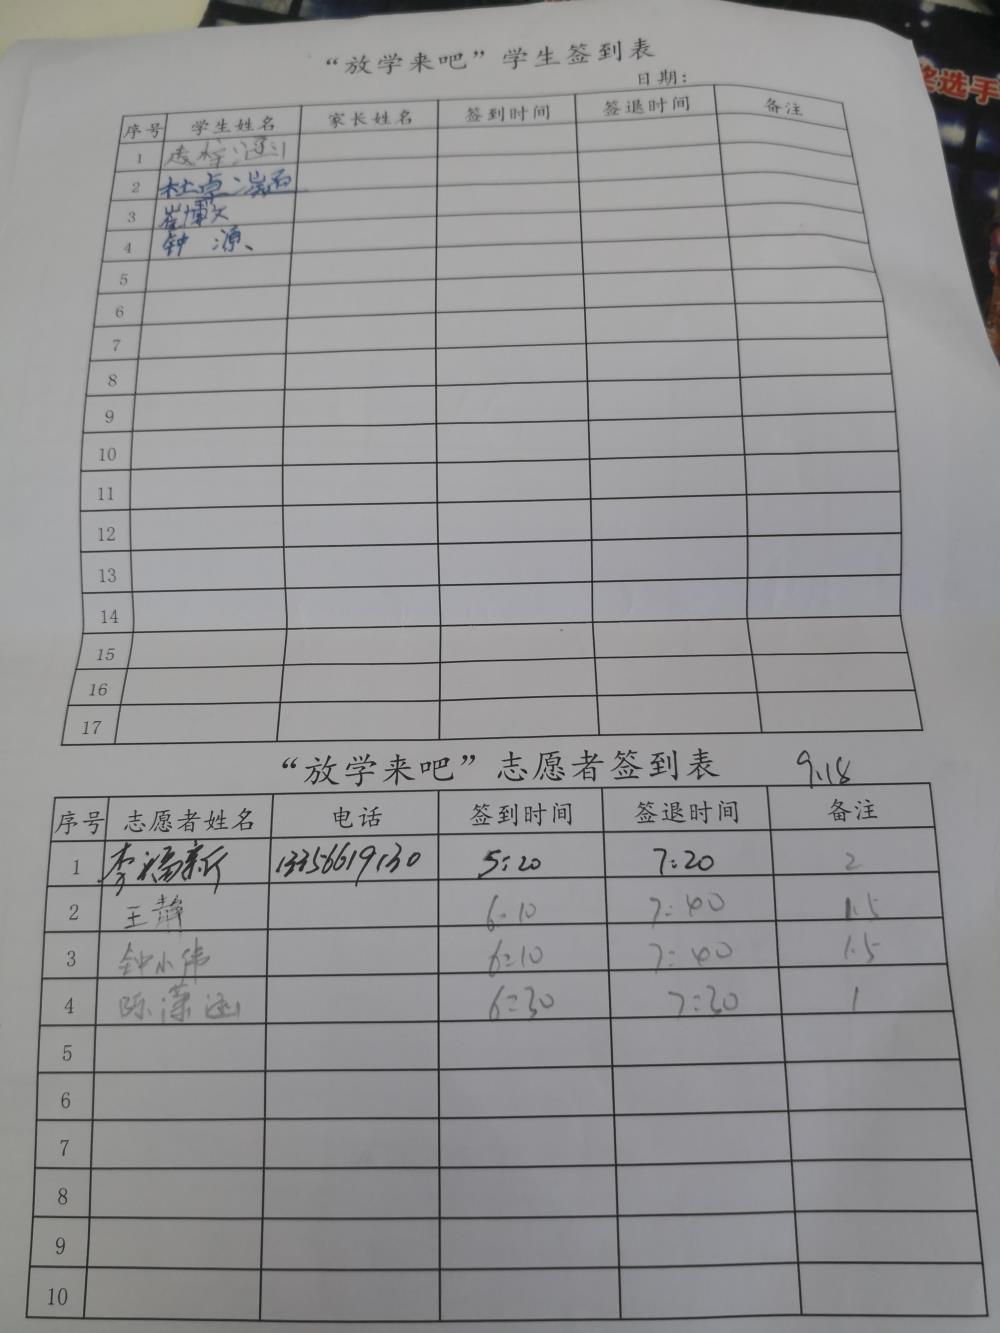 奖选手
“放学来吧”学生签到表
日期：
序号 学生姓名 家长姓名 签到时间 签退时间 备注
1 梓涵
2 杜卓
3 崔博文
4 钟源
5
6
7
8
9
10
11
12
13
14
15
16
17
“放学来吧”志愿者签到表 9.18
序号 志愿者姓名 电话 签到时间 签退时间 备注
1 李福新 13356619130 5:20 7:20 2
2 王静 6:10 7:40 1.5
3 钟小伟 6:10 7:40 1.5
4 陈潇涵 6:30 7:30 1
5
6
7
8
9
10